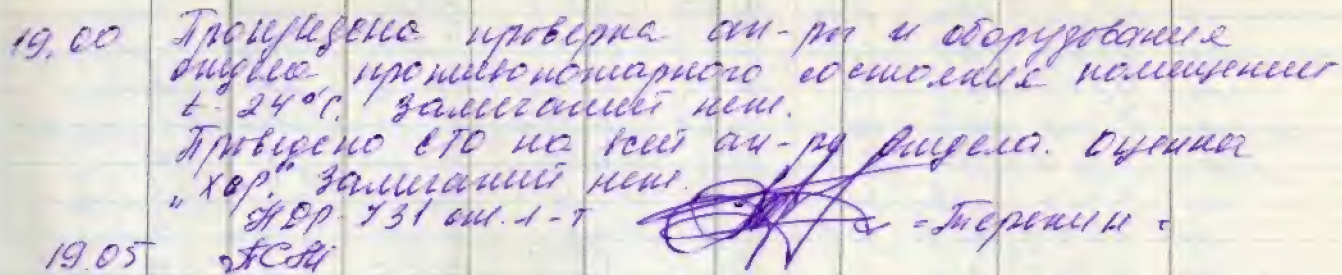 19.00 Произведена проверка ап-ры и оборудования
отдела противопожарного состояния помещений
t - 24°С. Замечаний нет.
Проведено ЕТО на всей ап-ре отдела. Оценка
„хор." Замечаний нет.
731 ст. л-т = Терехин =
19.05